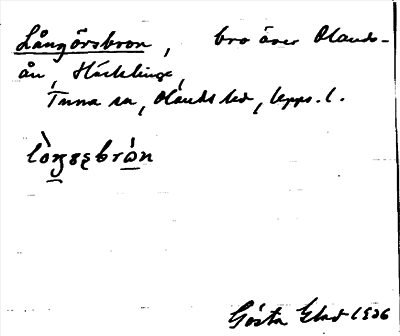 Långörsbron, bro över Olands-
ån, Häcklinge,
Tuna sn, Olands hd, Upps. l.
lòŋgs̨brón
Gösta Elad 1936